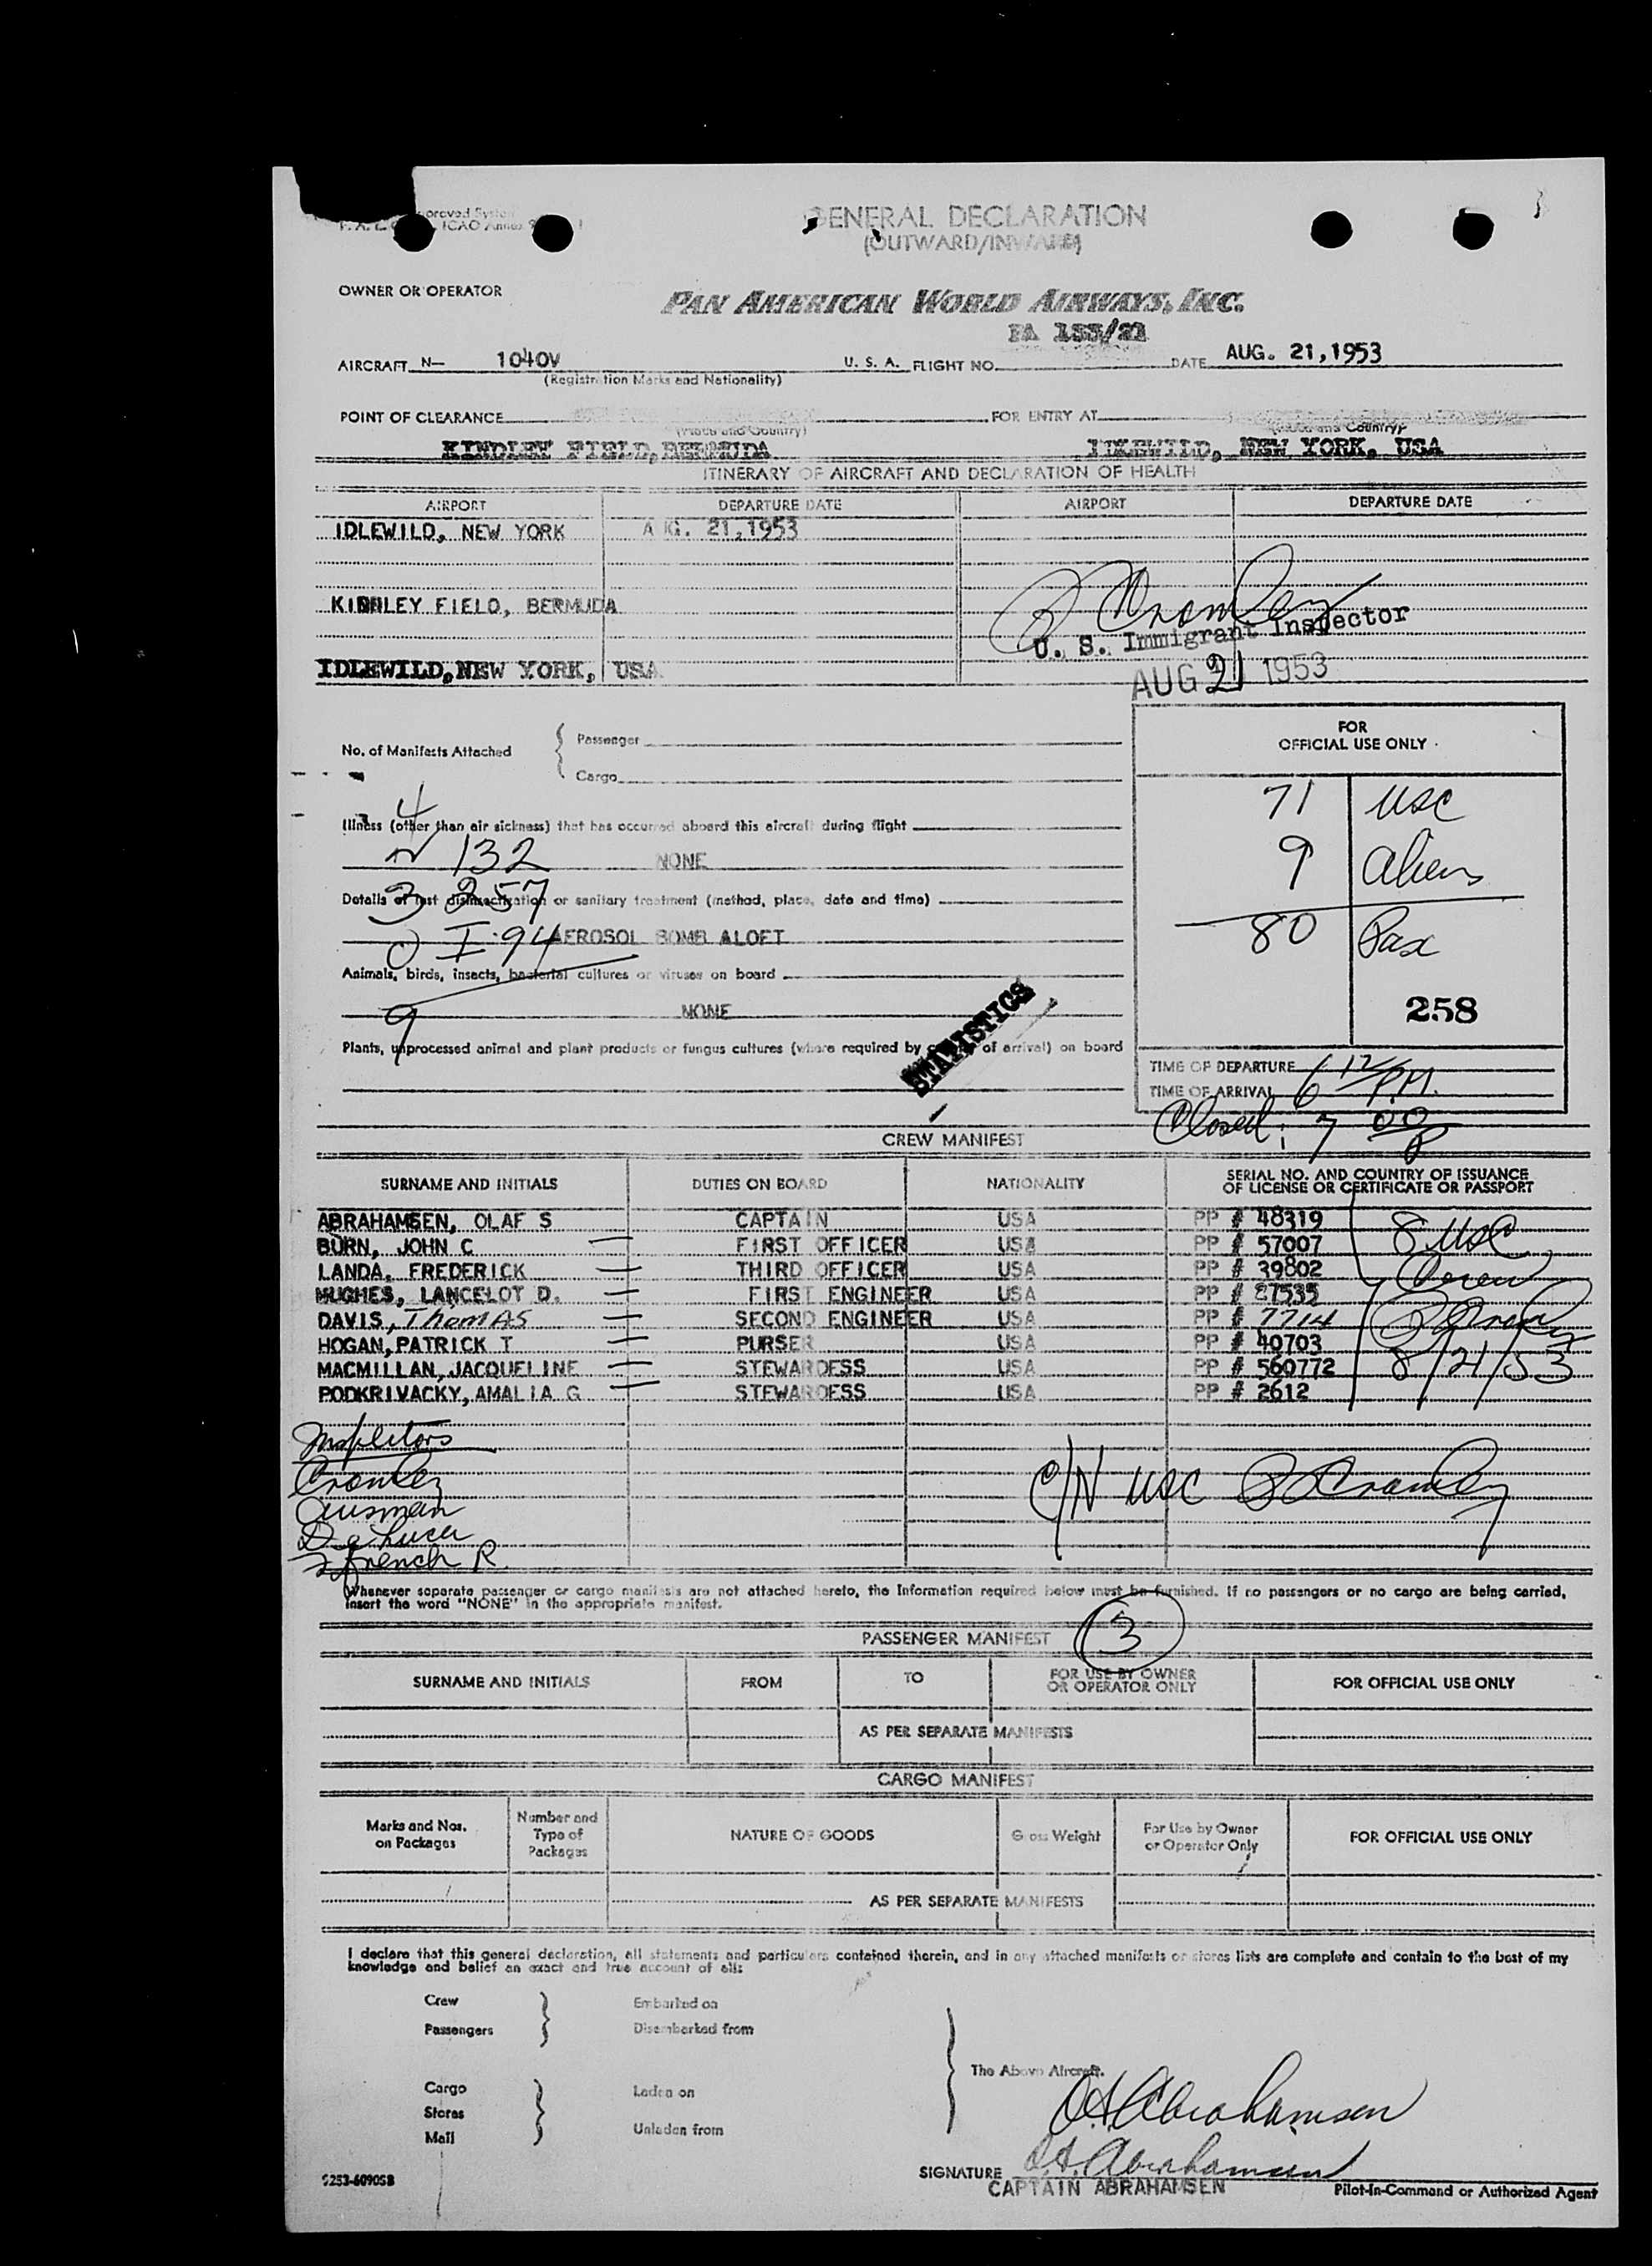 GENERAL DECLARATION
(OUTWARD/INWARD)
OWNER OR OPERATOR
PAN AMERICAN WORLD AIRWAYS, INC.
PA 155/21
AIRCRAFT N— 1040V U. S. A. FLIGHT NO. DATE AUG. 21,1953
(Registration Marks and Nationality)
POINT OF CLEARANCE FOR ENTRY AT
(Place and Country) (Place and Country)
KINDLEY FIELD, BERMUDA IDLEWILD, NEW YORK, USA
ITINERARY OF AIRCRAFT AND DECLARATION OF HEALTH
AIRPORT DEPARTURE DATE AIRPORT DEPARTURE DATE
IDLEWILD, NEW YORK AUG. 21,1953
KINDLEY FIELD, BERMUDA
U. S. Immigrant Inspector
IDLEWILD, NEW YORK, USA
AUG 21 1953
FOR
OFFICIAL USE ONLY
No. of Manifests Attached
Passenger
Cargo
71 USC
4
Illness (other than air sickness) that has occurred aboard this aircraft during flight
132 NONE
9 Aliens
Details of last disinsectization or sanitary treatment (method, place, date and time)
3 257
80 Pax
I-94 AEROSOL BOMB ALOFT
Animals, birds, insects, bacterial cultures or viruses on board
9 NONE
258
STATISTICS
Plants, unprocessed animal and plant products or fungus cultures (where required by of arrival) on board
TIME OF DEPARTURE
TIME OF ARRIVAL 6 12 P.M.
Closed: 7 00 P
CREW MANIFEST
SURNAME AND INITIALS DUTIES ON BOARD NATIONALITY SERIAL NO. AND COUNTRY OF ISSUANCE
OF LICENSE OR CERTIFICATE OR PASSPORT
ABRAHAMSEN, OLAF S CAPTAIN USA PP # 48319
BURN, JOHN C FIRST OFFICER USA PP # 57007 8 USC
LANDA, FREDERICK THIRD OFFICER USA PP # 39802 Crew
HUGHES, LANCELOT D. FIRST ENGINEER USA PP # 27535
DAVIS, ThomAS SECOND ENGINEER USA PP # 7714
HOGAN,PATRICK T PURSER USA PP # 40703
MACMILLAN,JACQUELINE STEWARDESS USA PP # 560772 8/21/53
PODKRIVACKY,AMALIA G STEWARDESS USA PP # 2612
Inspectors
Cromley
C/N USC
De Luca
French R.
Whenever separate passenger or cargo manifests are not attached hereto, the information required below must be furnished. If no passengers or no cargo are being carried,
insert the word "NONE" in the appropriate manifest.
PASSENGER MANIFEST 3
SURNAME AND INITIALS FROM TO FOR USE BY OWNER
OR OPERATOR ONLY FOR OFFICIAL USE ONLY
AS PER SEPARATE MANIFESTS
CARGO MANIFEST
Marks and Nos.
on Packages Number and
Type of
Packages NATURE OF GOODS Gross Weight For Use by Owner
or Operator Only FOR OFFICIAL USE ONLY
AS PER SEPARATE MANIFESTS
I declare that this general declaration, all statements and particulars contained therein, and in any attached manifests or stores lists are complete and contain to the best of my
knowledge and belief an exact and true account of all:
Crew Embarked on
Passengers Disembarked from
The Above Aircraft.
Cargo Laden on
Stores
Mail Unladen from
O.S. Abrahamsen
SIGNATURE O.S. Abrahamsen
CAPTAIN ABRAHAMSEN Pilot-In-Command or Authorized Agent
5253-60905B